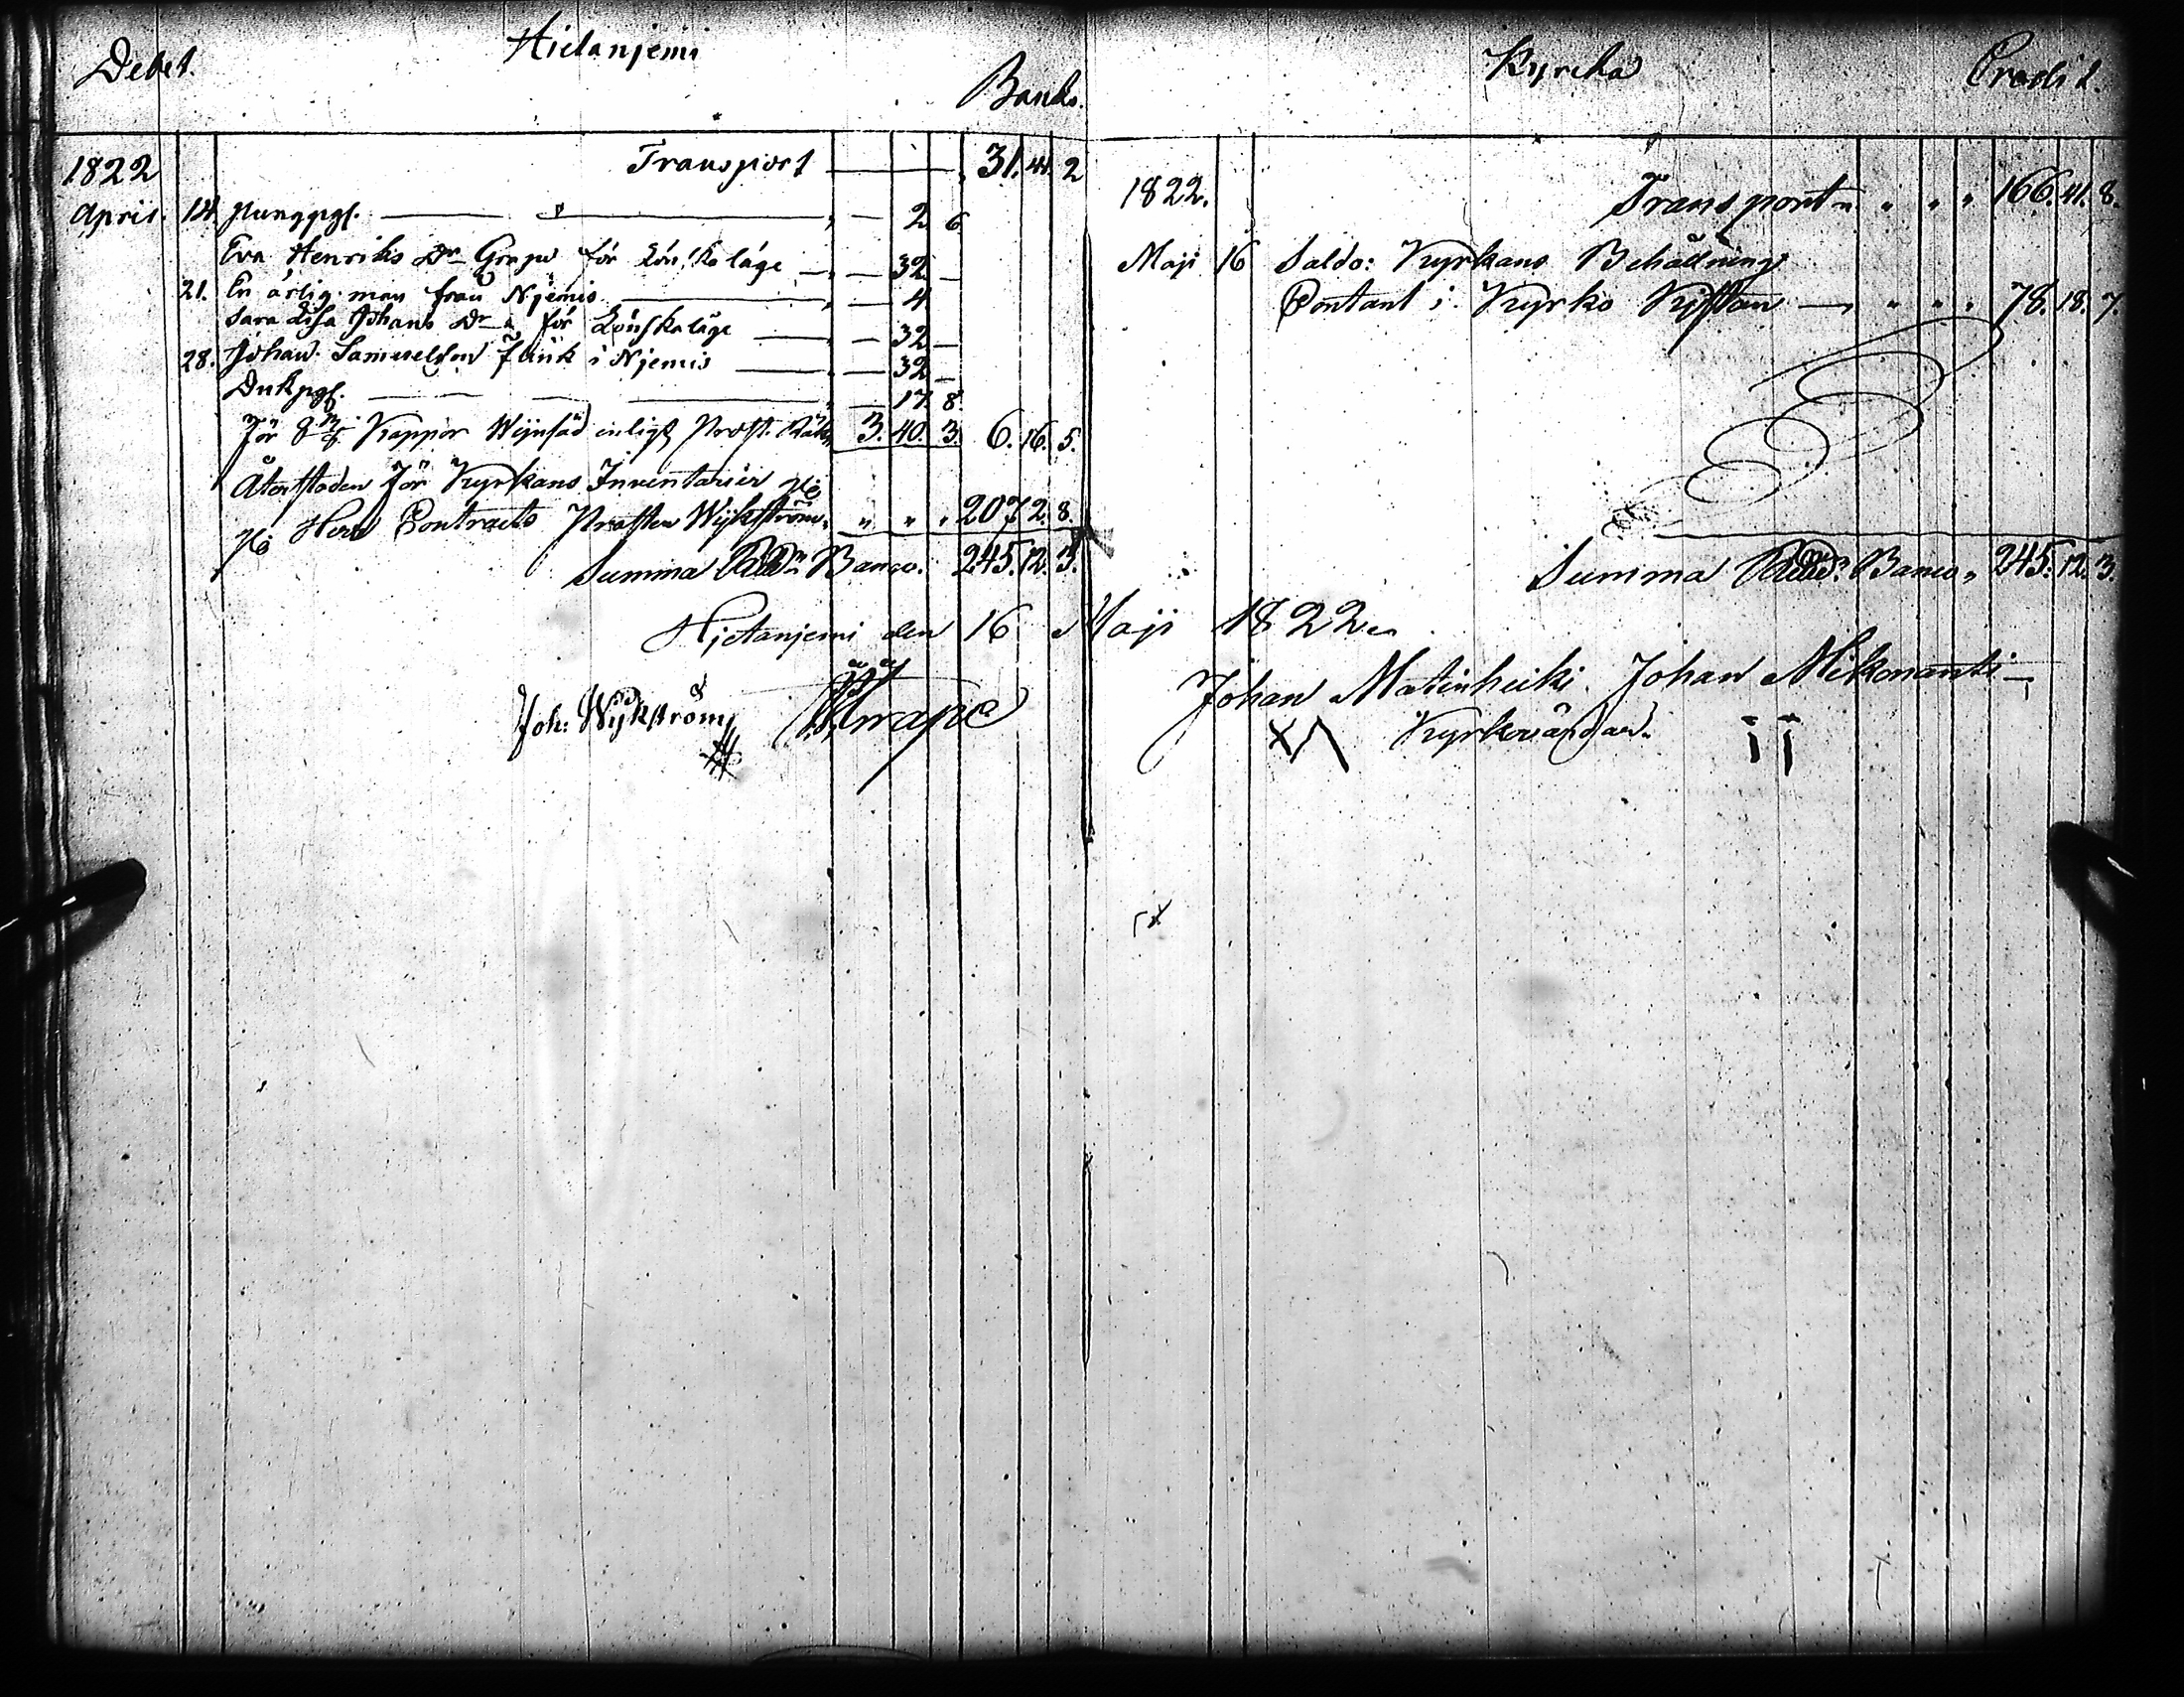 Debet. Hietanjemi
Banko.
1822 Transport 31. 41. 2
April. 14. Pungpgr. 2. 6
Eva Henriks Dr Grape för Lönskaläge 32 —
21. En ärlig man från Njemis 4
Sara Lisa Johans Dr för Lönskaläge 32 —
28. Johan Samuelsson Funk i Njemis 32 —
Dukpgr. 17. 8.
För Kappor Wijnsäd enligt Prost. Räkn 3. 40. 3. 6. 16. 5.
Återstoden för Kyrkans Inventarier
Herr Contracts Prosten Wijkström. " " " 207. 2. 8.
Summa Rdr Banco. 245. 12. 3.
Kyrcka Credit.
1822. Transport " " " 166. 41. 8.
Maji 16 Saldo: Kyrkans Behållning
Contant i Kyrko Kistan — " " " 78. 18. 7.
Summa Rdr Banco " 245. 12. 3.
Hjetanjemi den 16 Maji 1822.
Joh: Wijkström Grape Johan Matinheiki Johan Mikonantti
Kyrkovärdar.